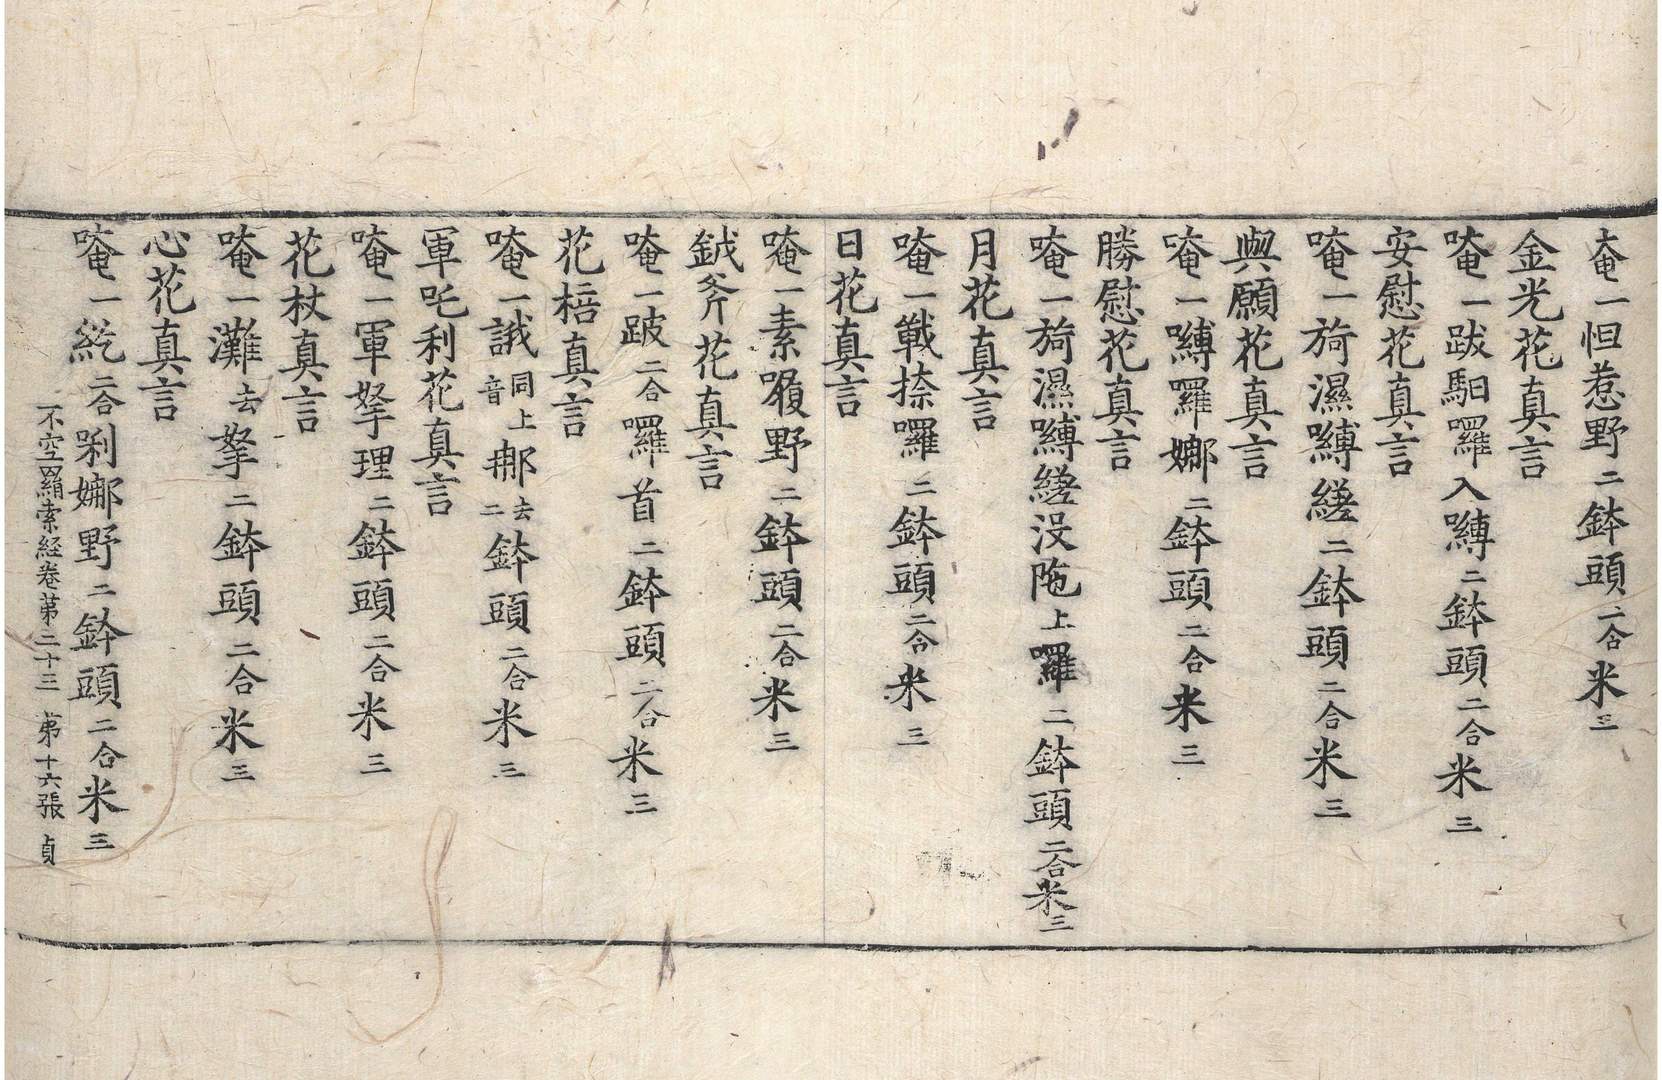 唵一怛惹野二鉢頭二合米三
金光花真言
唵一跋馹囉入嚩二鉢頭二合米三
安慰花真言
唵一旖濕嚩縒二鉢頭二合米三
與願花真言
唵一嚩囉娜二鉢頭二合米三
勝慰花真言
唵一旖濕嚩縒没陁上囉二鉢頭二合米三
月花真言
唵一戰捺囉二鉢頭二合米三
日花真言
唵一素㗚野二鉢頭二合米三
鉞斧花真言
唵一跛二合囉首二鉢頭二合米三
花棓真言
唵一誐同上音那去二鉢頭二合米三
軍吒利花真言
唵一軍拏理二鉢頭二合米三
花杖真言
唵一灘去拏二鉢頭二合米三
心花真言
唵一紇二合唎娜野二鉢頭二合米三
不空羂索経卷第二十三 第十六張 貞